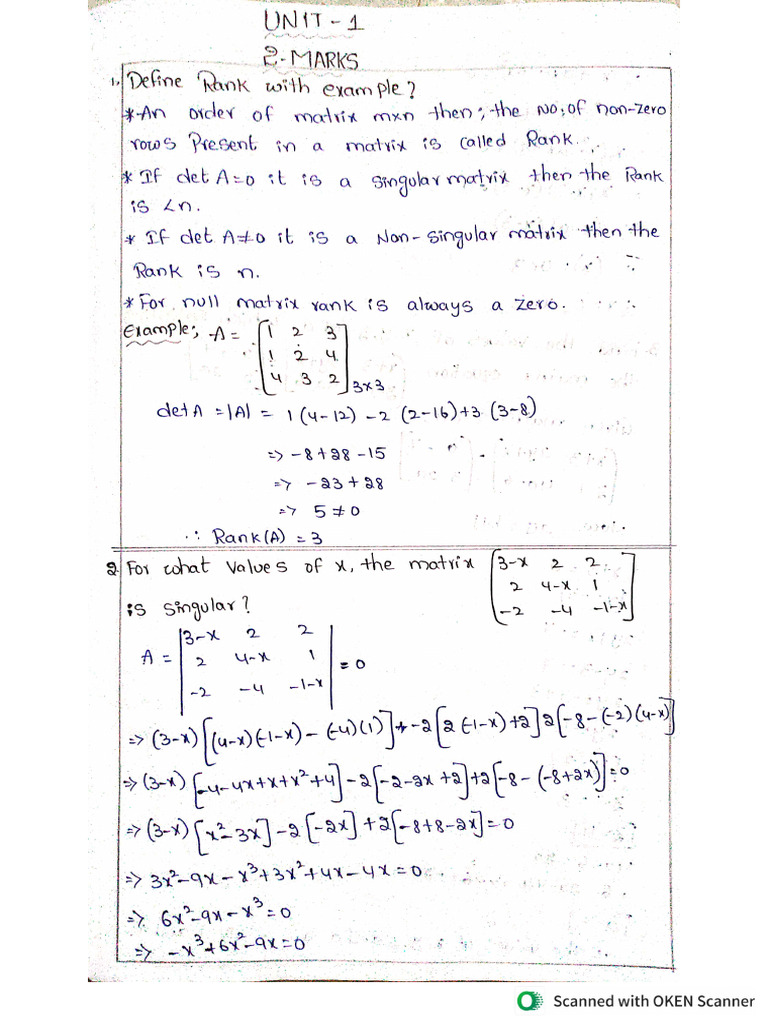 UNIT-1
2-MARKS
1. Define Rank with example?
*An order of matrix mxn then; the No; of non-zero
rows Present in a matrix is called Rank.
* If det A=0 it is a singular matrix then the Rank
is <n.
* If det A≠0 it is a Non-singular matrix then the
Rank is n.
*For null matrix rank is always a zero.
Example; A= [1 2 3
1 2 4
4 3 2] 3x3
det A = |A| = 1(4-12) -2 (2-16)+3 (3-8)
=> -8+28-15
=> -23+28
=> 5≠0
∴ Rank(A) = 3
2. For what values of x, the matrix [3-x 2 2
2 4-x 1
-2 -4 -1-x]
is singular?
A = |3-x 2 2
2 4-x 1
-2 -4 -1-x| =0
=> (3-x)[(4-x)(-1-x)-(-4)(1)]+-2[2(-1-x)+2]2[-8-(-2)(4-x)]
=> (3-x)[-4-4x+x+x²+4]-2[-2-2x+2]+2[-8-(-8+2x)]=0
=> (3-x)[x²-3x]-2[-2x]+2[-8+8-2x]=0
=> 3x²-9x-x³+3x²+4x-4x=0
=> 6x²-9x-x³=0
=> -x³+6x²-9x=0
Scanned with OKEN Scanner